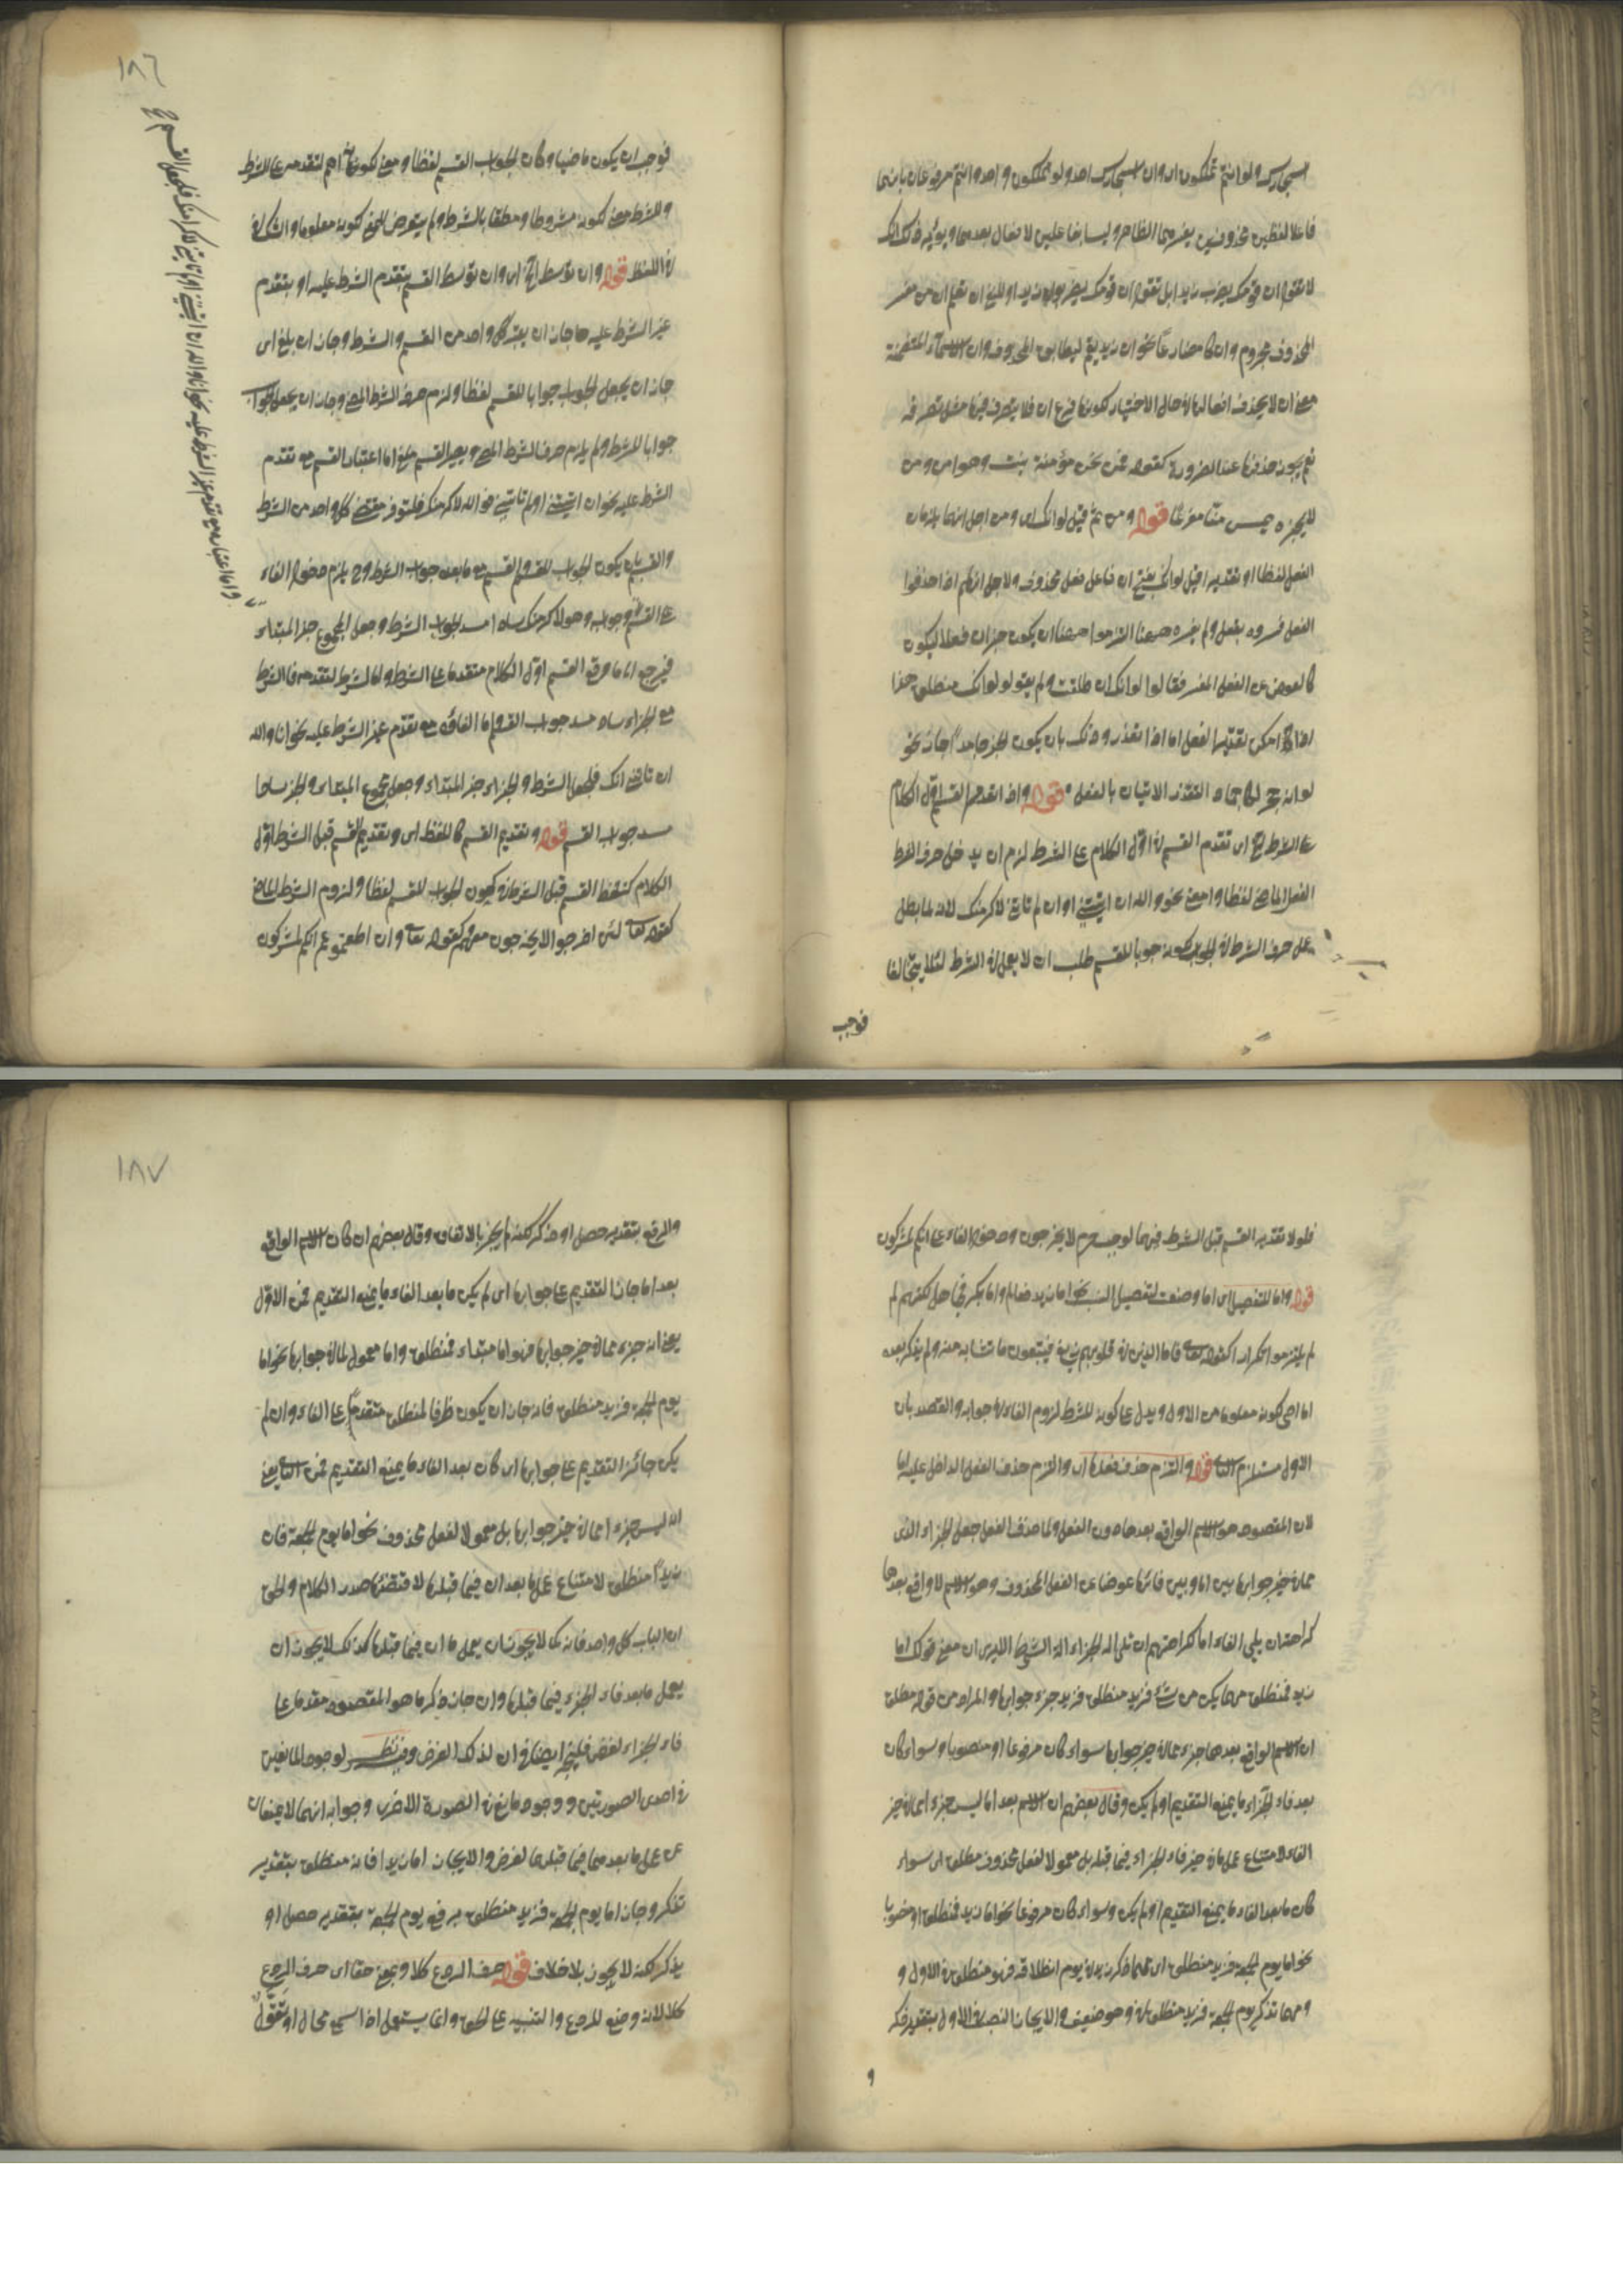 فاعلا لفظين محذوفين يفسرهما الظاهر وليسا بفاعلين لافعال بعدهما ويؤيد ذلك انك
لا تقول ان قومك يضرب زيدا بل تقول ان قومك يضربون زيدا
المحذوف مجزوم وان كان مضارعا نحو ان زيد يقم ليطابق المحذوف وان الاسماء المتضمنة
معنى ان لا يحذف افعالها في حال الاختيار لكونها فرع ان فلا يتصرف فيها مثل تصرفه
نعم يجوز حذفها عند الضرورة كقوله فمن نحن نؤمنه يبت وهو امن ومن
لا نجره يمس منا مفزعا قوله ومن ثم قيل لو انك اى ومن اجل انهما يلزمان
الفعل لفظا او تقديرا قيل لو انك بفتح ان فاعل فعل محذوف ولاجل انهم اذا حذفوا
الفعل فسروه بفعل ولم يفسره ههنا التزموا ههنا ان يكون خبر ان فعلا ليكون
كالعوض عن الفعل المفسر فقالوا لو انك انطلقت ولم يقولوا لو انك منطلق هذا
اذا امكن تقدير الفعل اما اذا تعذر وذلك بان يكون الخبر جامدا جاز نحو
لو انه حجر لكان جمادا لتعذر الاتيان بالفعل قوله واذا تقدم القسم اول الكلام
على الشرط الخ اى تقدم القسم في اول الكلام على الشرط لزم ان يدخل حرف الشرط
الفعل الماضى لفظا او معنى نحو والله ان اتيتنى او ان لم تاتنى لاكرمنك لانه لما بطل
عمل حرف الشرط في الجواب لكونه جوابا للقسم طلب ان لا يعمل في الشرط لئلا يتخالفا
فوجب
١٨٦
فوجب ان يكون ماضيا وكان الجواب للقسم لفظا ومعنى لكونه اهم لتقدمه على الشرط
وللشرط معنى لكونه مشروطا ومطلقا بالشرط ولم يتعرض للمعنى لكونه معلوما
في اللفظ قوله وان توسط الخ اى وان توسط القسم بتقدم الشرط عليه او بتقدم
غير الشرط عليه جاز ان يعتبر كل واحد من القسم والشرط وجاز ان يلغى اى
جاز ان يجعل الجواب جوابا للقسم لفظا ولزم حرف الشرط المضى وجاز ان يجعل الجواب
جوابا للشرط ولم يلزم حرف الشرط المضى ويصير القسم ملغى اما اعتبار القسم مع تقدم
الشرط عليه نحو ان اتيتنى او لم تاتنى فو الله لاكرمنك فلتوفر مقتضى كل واحد من الشرط
والقسم بان يكون الجواب للقسم والقسم مع ما بعده جواب الشرط وح يلزم دخول الفاء
على القسم وجوابه وهو لاكرمنك ساد مسد جواب الشرط وجعل المجموع خبر المبتداء
مع الجزاء ساد مسد جواب القسم واما الغاؤه مع تقدم غير الشرط عليه نحو انا والله
ان تاتنى اتك فلجعل الشرط والجزاء خبر المبتداء وجعل مجموع المبتداء والخبر سادا
مسد جواب القسم قوله وتقدير القسم كاللفظ اى وتقدير القسم قبل الشرط اول
الكلام كتلفظ القسم قبل الشرط في كون الجواب للقسم لفظا ولزوم الشرط الماضى
كقوله تعالى لئن اخرجوا لا يخرجون معهم وكقوله تعالى وان اطعتموهم انكم لمشركون
فلولا تقدير القسم قبل الشرط فيهما لوجب جزم لا يخرجون ودخول الفاء على انكم لمشركون
قوله واما للتفصيل اى اما وضعت لتفصيل النسب نحو اما زيد فعالم واما بكر فجاهل لكنهم لم
لم يلتزموا تكرارا كقوله تعالى فاما الذين في قلوبهم زيغ فيتبعون ما تشابه منه ولم يذكر بعده
اما اخرى لكونه معلوما من الاول ويدل على كونه للشرط لزوم الفاء في جوابه والقصد بان
الاول مستلزم للثانى قوله والتزم حذف فعلها اى والتزم حذف الفعل الداخل عليه اما
لان المقصود هو الاسم الواقع بعدها دون الفعل ولما حذف الفعل جعل الجزء الذى
مما في حيز جوابها بين اما وبين فائها عوضا عن الفعل المحذوف وهو الاسم الواقع بعدها
كراهة ان يلى الفاء اما لكراهتهم ان تلى اله الجزاء الة الشرط الا ليرى ان معنى قولك اما
زيد فمنطلق مهما يكن من شئ فزيد منطلق فزيد جزء جوابها والمراد من قوله مطلق
ان الاسم الواقع بعدها جزء مما في حيز جوابها سواء كان مرفوعا او منصوبا وسواء كان
بعد فاء الجزاء ما يمنع التقديم او لم يكن وقال بعضهم ان الاسم بعد اما ليس جزء مما في حيز
الفاء لامتناع عمل ما في حيز فاء الجزاء فيما قبله بل معمولا لفعل محذوف مطلق اى سواء
كان ما بعد الفاء ما يمنع التقديم او لم يكن وسواء كان مرفوعا نحو اما زيد فمنطلق او منصوبا
نحو اما يوم الجمعة فزيد منطلق اى مهما ذكر زيد في يوم انطلاقه فهو منطلق في الاول و
ومهما تذكر يوم الجمعة فزيد منطلق في وهو ضعيف والا لجاز النصب في الاول بتقدير ذكر
و
١٨٧
والرفع بتقدير حصل او ذكر لكنه لم يجز بالاتفاق وقال بعضهم ان كان الاسم الواقع
بعد اما جائز التقديم على جوابها اى لم يكن ما بعد الفاء ما يمنع التقديم فمن الاول
يعنى انه جزء مما في حيز جوابها فهو اما مبتداء فمنطلق واما معمول لما في جوابها نحو اما
يوم الجمعة فزيد منطلق فانه جاز ان يكون ظرفا لمنطلق متقدما على الفاء وان لم
يكن جائز التقديم على جوابها اى كان بعد الفاء ما يمنع التقديم فمن الثانى يعنى
انه ليس جزء مما في حيز جوابها بل معمولا لفعل محذوف نحو اما يوم الجمعة فان
زيدا منطلق لامتناع عمل ما بعد ان فيما قبلها لاقتضائها صدر الكلام والحق
ان الباب كل واحد فانه كما لا يجوز ان يعمل ما ان فيما قبلها كذلك لا يجوز ان
يعمل ما بعد فاء الجزاء فيما قبلها وان جاز ذكر ما هو المقصود مقدما على
فاء الجزاء لغرض فليجز ايضا في ان لذلك الغرض وفيه نظر لوجود المانعين
في احدى الصورتين ووجود مانع في الصورة الاخرى وجوابه انهما لا يمنعان
عن عمل ما بعدهما فيما قبلهما لغرض والا لجاز اما زيدا فانه منطلق بتقدير
تذكر وجاز اما يوم الجمعة فزيد منطلق برفع يوم الجمعة بتقدير حصل او
يذكر لكنه لا يجوز بلا خلاف قوله حرف الردع كلا وبمعنى حقا اى حرف الردع
كلا لانه وضع للردع والتنبيه على الحق وانما يستعمل اذا سمع محال او تقول